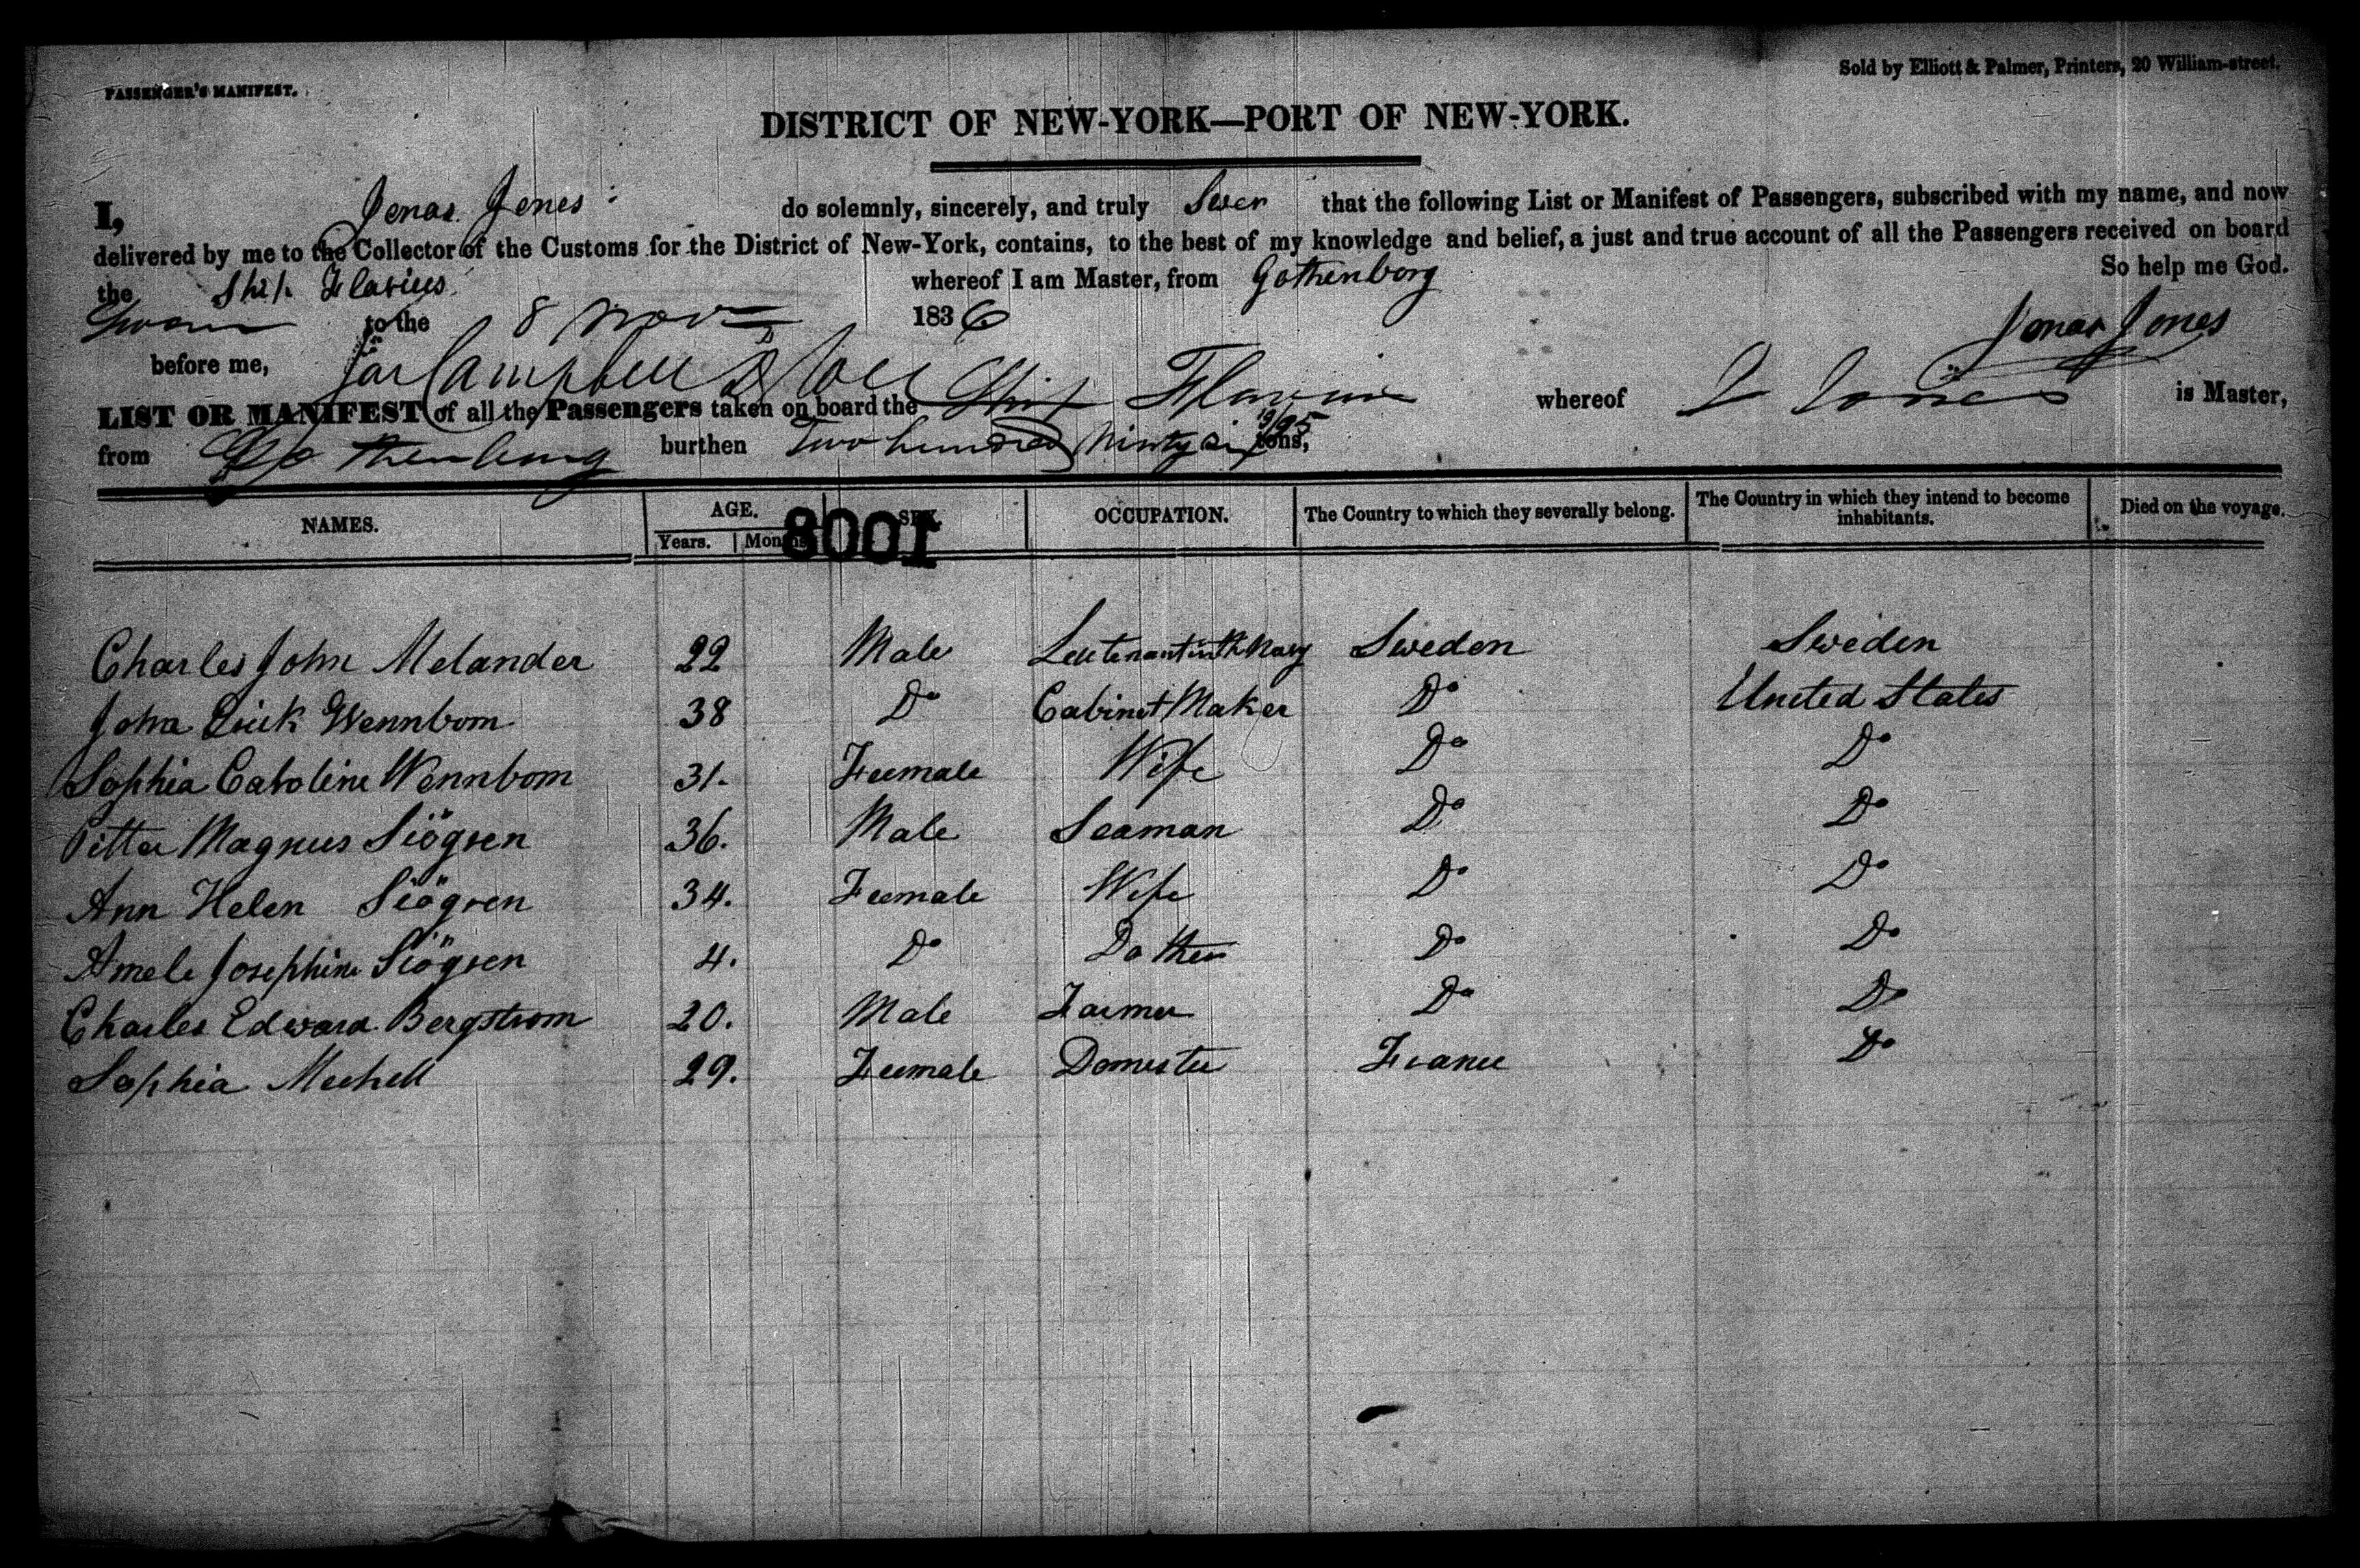 PASSENGER'S MANIFEST.
Sold by Elliott & Palmer, Printers, 20 William-street.
DISTRICT OF NEW-YORK—PORT OF NEW-YORK.
I, Jonas Jones do solemnly, sincerely, and truly Swer that the following List or Manifest of Passengers, subscribed with my name, and now
delivered by me to the Collector of the Customs for the District of New-York, contains, to the best of my knowledge and belief, a just and true account of all the Passengers received on board
the Ship Flavius whereof I am Master, from Gothenborg So help me God.
Sworn to the 8 Nov 1836 Jonas Jones
before me, Campbell
LIST OR MANIFEST of all the Passengers taken on board the Ship Flavius whereof J Jones is Master,
from Gothenburg burthen Two hundred Ninty Six 19/95 tons,
NAMES. AGE. SEX. OCCUPATION. The Country to which they severally belong. The Country in which they intend to become inhabitants. Died on the voyage.
Years. Months
8001
Charles John Melander 22 Male Leutenant in the Navy Sweden Sweden
John Erick Wennbom 38 Do Cabinet Maker Do United States
Sophia Caroline Wennbom 31. Feemale Wife Do Do
Pitter Magnus Siögren 36. Male Seaman Do Do
Ann Helen Siögren 34. Feemale Wife Do Do
Amele Josephine Siögren 4. Do Dother Do Do
Charles Edward Bergstrom 20. Male Farmer Do Do
Sophia 29. Feemale Domestic France Do